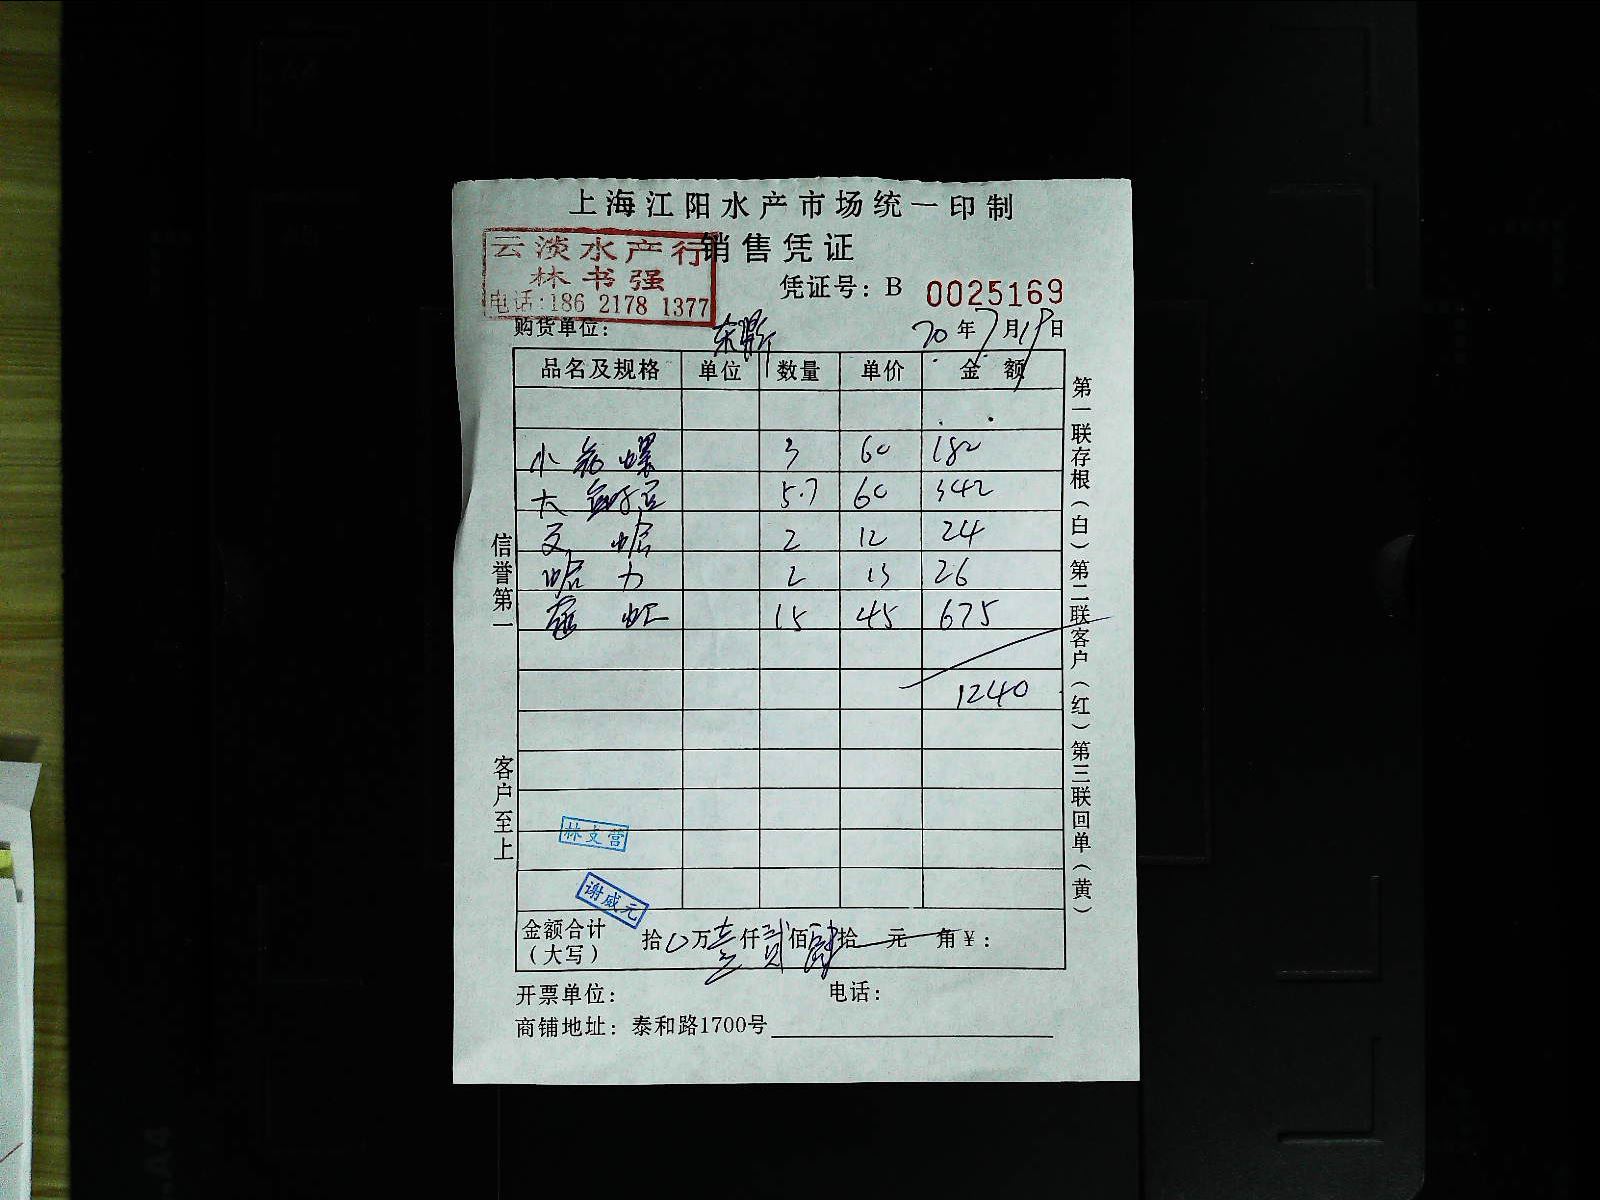 上海江阳水产市场统一印制
销售凭证
云淡水产行
林书强
电话:186 2178 1377
凭证号：B 0025169
购货单位： 20年7月19日
品名及规格 单位 数量 单价 金额
小 螺 3 60 180
大 5.7 60 342
文蛤 2 12 24
蛤力 2 13 26
虹 15 45 675
1240
林文营
谢威元
金额合计（大写） 拾 万壹仟贰佰肆拾 元 角￥：
开票单位： 电话：
商铺地址：泰和路1700号
信誉第一 客户至上
第一联存根（白）第二联客户（红）第三联回单（黄）